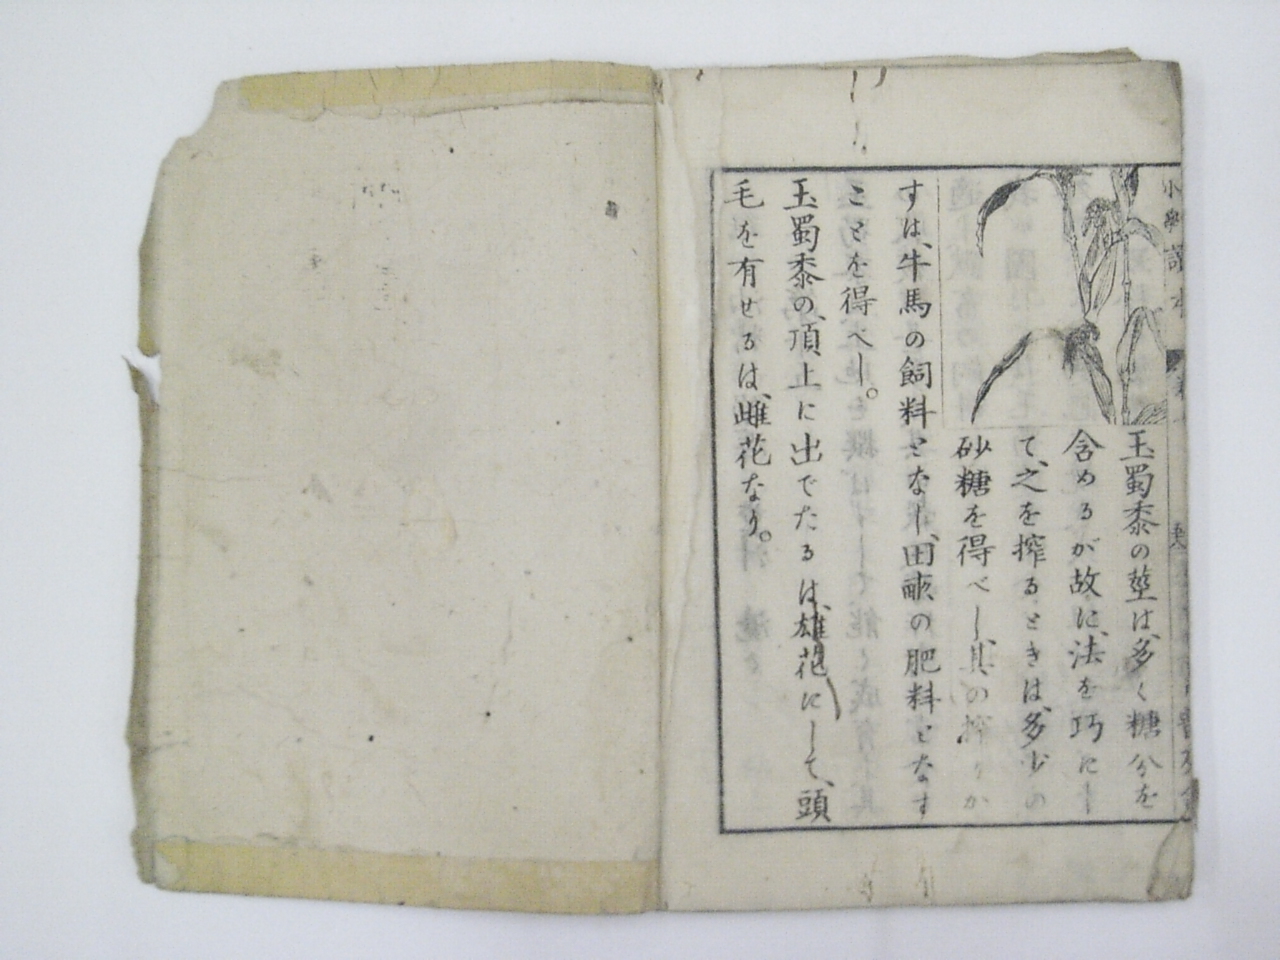 玉蜀黍の莖は、多く糖分を
含めるが故に、法を巧にし
て、之を搾るときは、多少の
砂糖を得べし、其の搾りか
すは、牛馬の飼料となし、田畝の肥料となす
ことを得べし。
玉蜀黍の、頂上に出でたるは、雄花にして、頭
毛を有せるは、雌花なり。